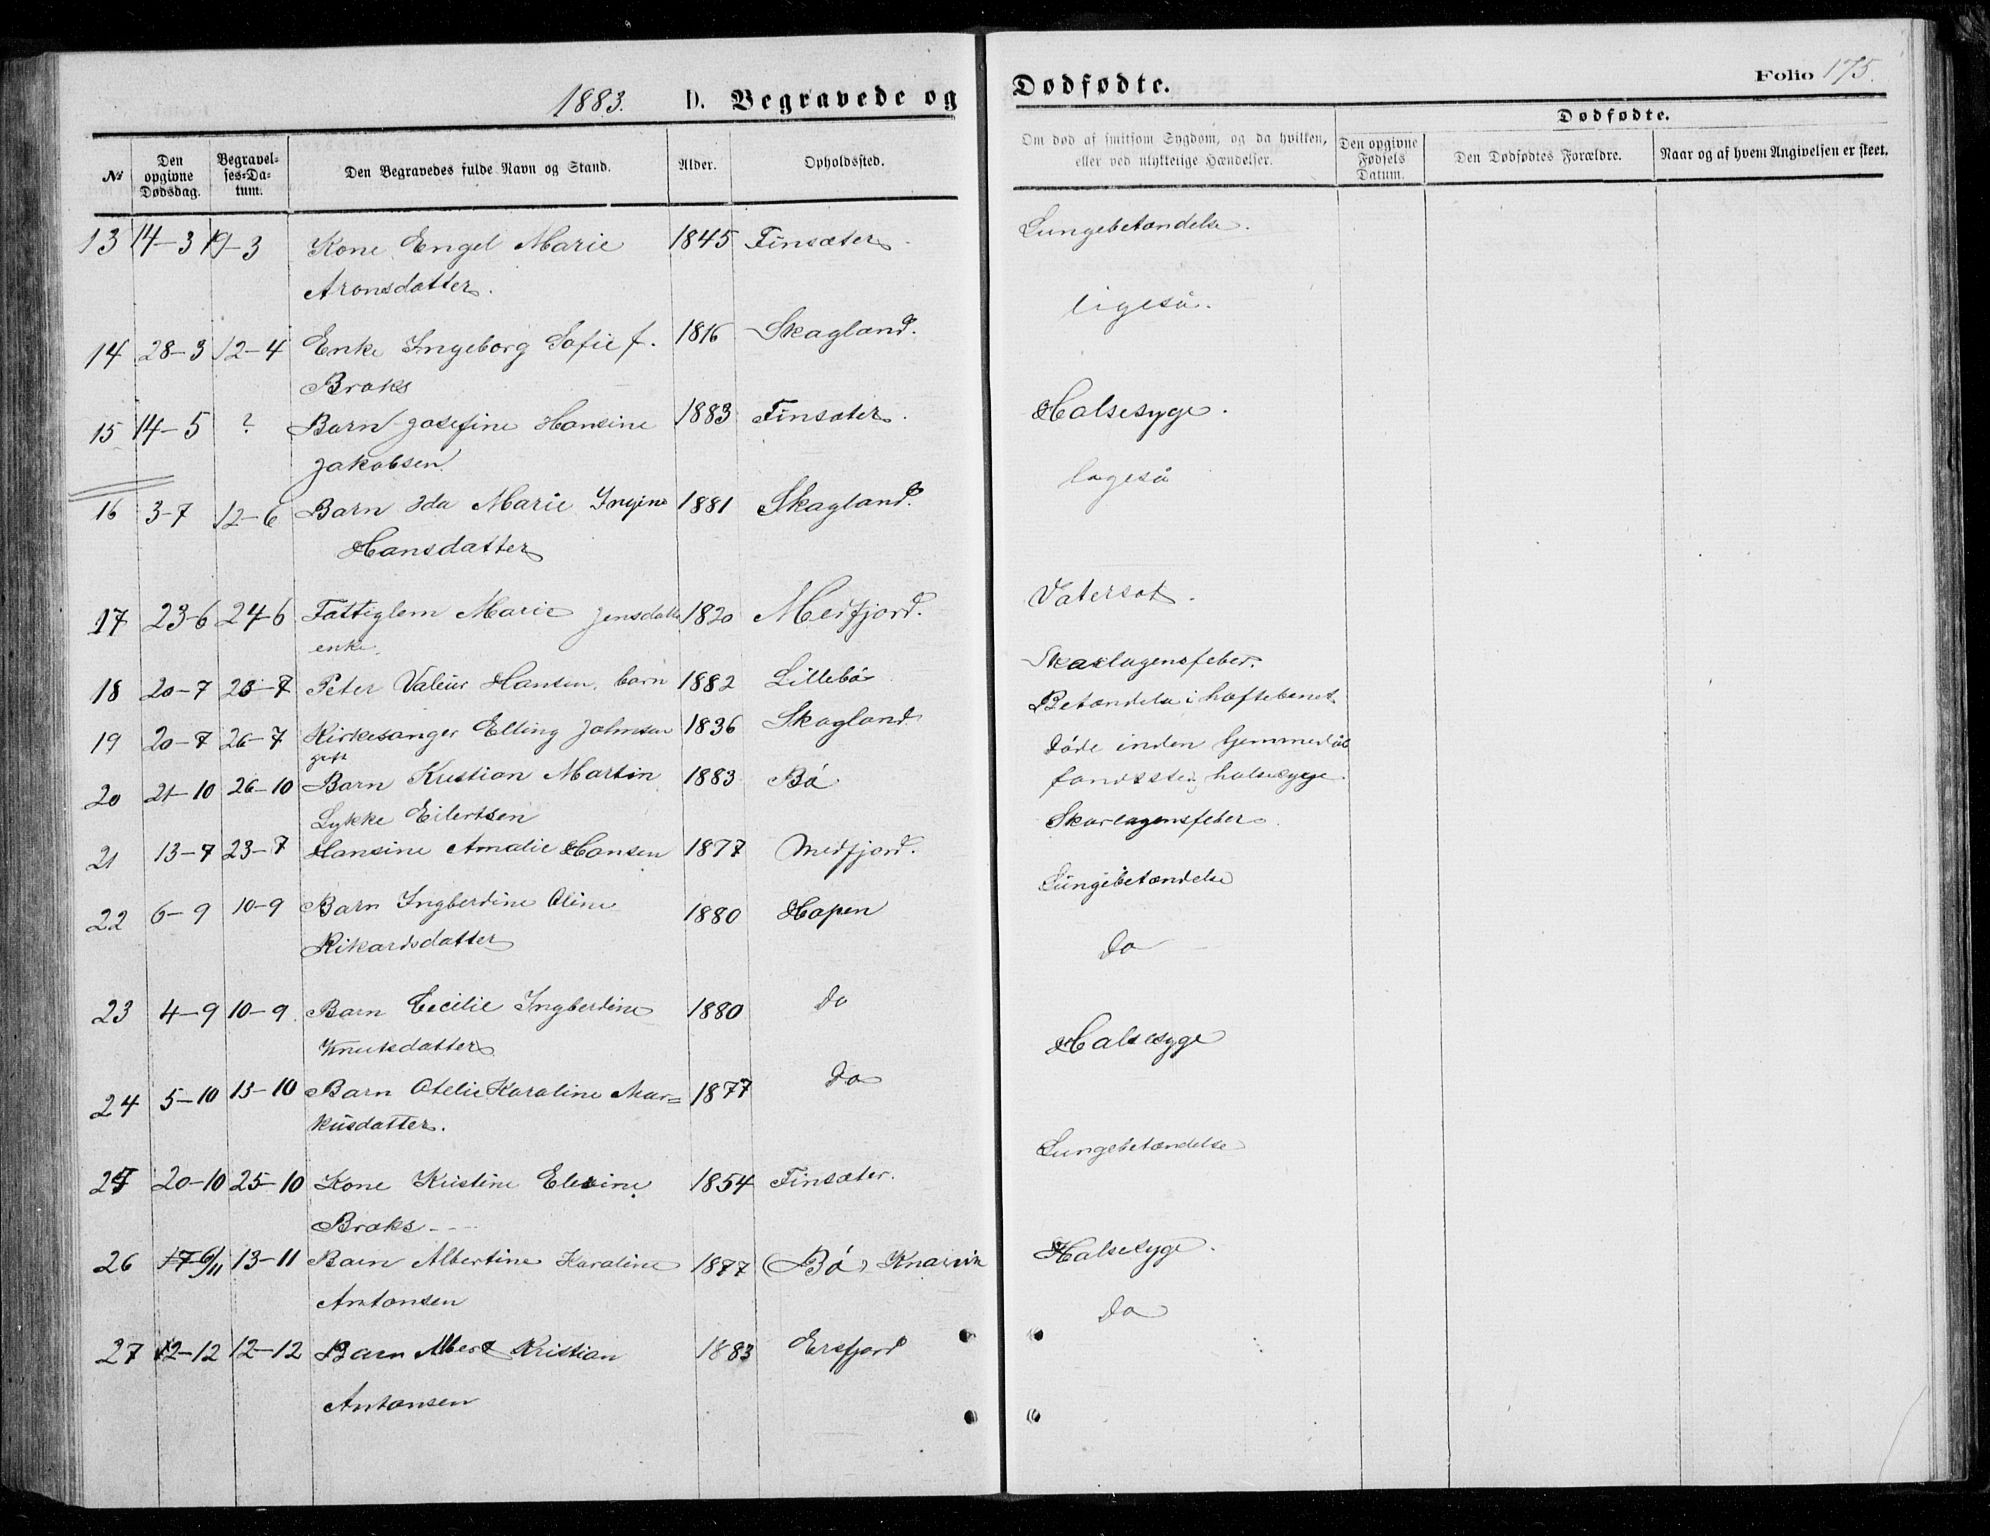 1883. D. Begravede og Dødfødte. Folio 175.
№ Den opgivne Dødsdag. Begravel-ses-Da-tum. Den Begravedes fulde Navn og Stand. Alder. Opholdssted. Om død af smitsom Sygdom, og da hvilken, eller ved ulykkelige Hændelser. Dødfødte. Den opgivne Fødsels Datum. Den Dødfødtes Forældre. Naar og af hvem Angivelsen er skeet.
13 14-3 19-3 Kone Engel Marie 1845 Finsæter. Lungebetændelse.
Aronsdatter.
ligeså.
14 28-3 12-4 Enke Ingeborg Sofie f. 1816 Skagland.
Braks
15 14-5 ? Barn Josefine Hansine 1883 Finsæter. Halsesyge.
Jakobsen
ligeså
16 3-7 12-6 Barn Ida Marie 1881 Skagland.
Hansdatter
17 23-6 24-6 Fattiglem Marie Jensdatter 1820 Medfjord. Vatersot.
enke.
18 20-7 23-7 Peter Valeur Hansen, barn 1882 Lillebø Skarlagensfeber.
19 20-7 26-7 Kirkesanger Elling Johnsen 1836 Skagland Betændelse i hoftebenet
gift
20 21-10 26-10 Barn Kristian Martin 1883 Bø døde inden hjemmedåb
Lykke Eilertsen halsesyge.
21 13-7 23-7 Hansine Amalie Hansen 1877 Medfjord. Skarlagensfeber.
22 6-9 10-9 Barn Ingberdine Oline 1880 Hopen Lungebetændelse
Rikardsdatter
do
23 4-9 10-9 Barn Cecilie Ingberdine 1880 do
Knutsdatter
Halsesyge
24 5-10 13-10 Barn Otelie Karoline Mar= 1877 do
kusdatter.
Lungebetændelse
25 20-10 25-10 Kone Kristine Elesine 1854 Finsæter.
Braks
26 6/11 13-11 Barn Albertine Karoline 1877 (Bø) Knarvik Halsesyge.
Antonsen
do
27 2-12 12-12 Barn Albert Kristian 1883 Ersfjord
Antonsen